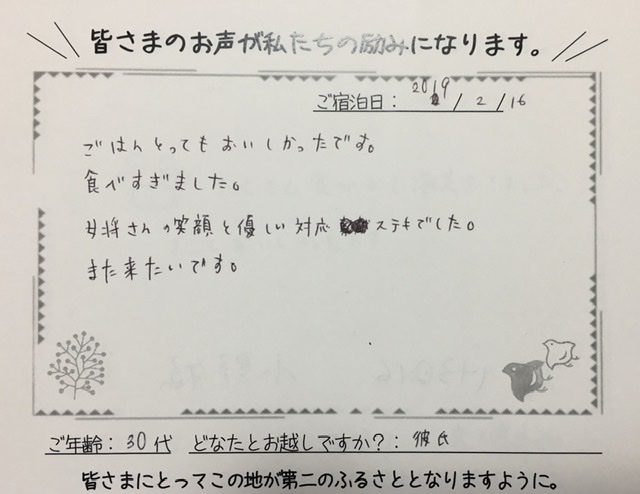 皆さまのお声が私たちの励みになります。
ご宿泊日: 2019/2/16
ごはんとってもおいしかったです。
食べすぎました。
女将さんの笑顔と優しい対応 ステキでした。
また来たいです。
ご年齢: 30代 どなたとお越しですか?: 彼氏
皆さまにとってこの地が第二のふるさととなりますように。